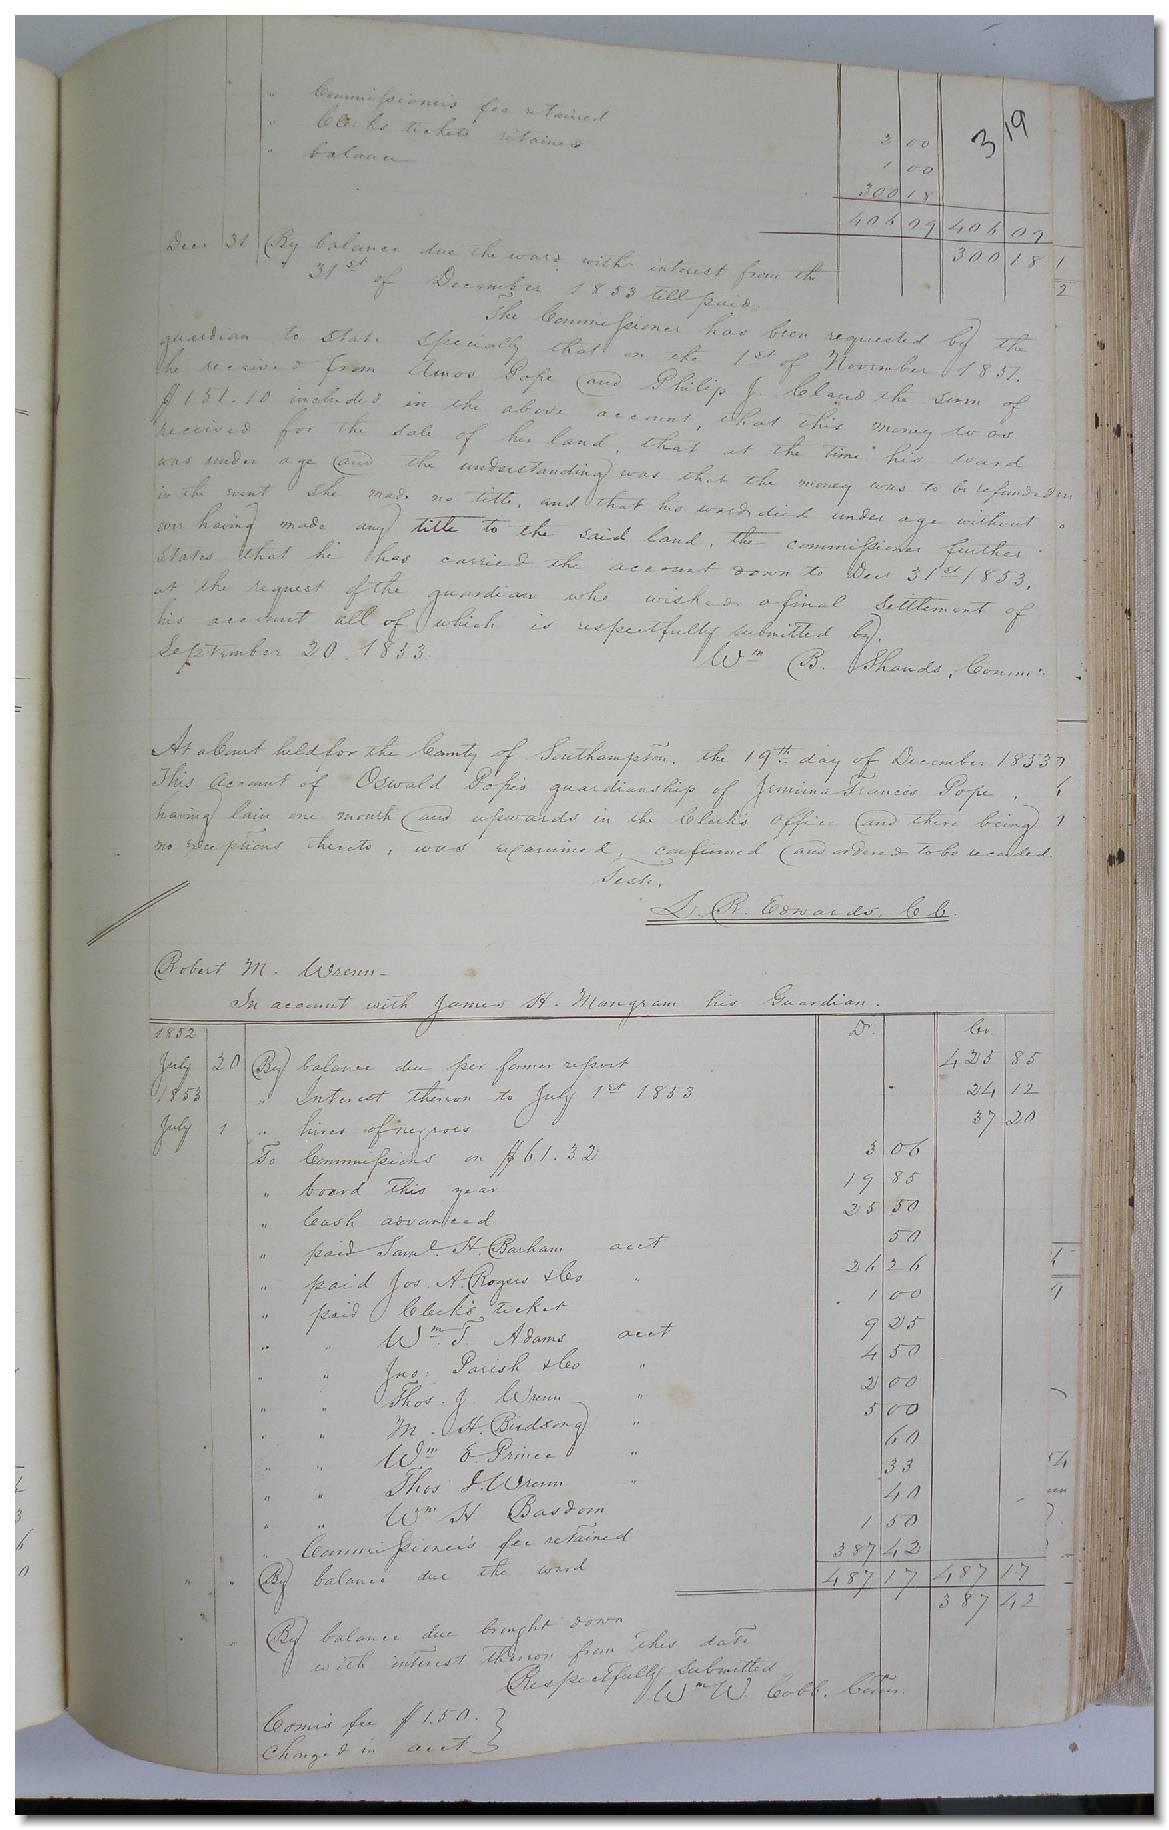 319
" Commissioner's fee retained 2 00
" Clerks tickets retained 1 00
" balance 300 18
406 09 406 09
Decr 31 By balance due the ward with interest from the 300 18
31st of December 1853 till paid.
The Commissioner has been requested by the
guardian to state specially that on the 1st of November 1851.
he received from Amos Pope and Philip J. Claud the sum of
$151.10 included in the above account, that this money was
received for the sale of her land, that at the time his ward
was under age and the understanding was that the money was to be refunded
in the event she made no title, and that his ward died under age without
ever having made any title to the said land. the commissioner further
states that he has carried the account down to Decr 31st 1853,
at the request of the guardian who wished a final settlement of
his account all of which is respectfully submitted by.
September 20. 1853. Wm B. Shands, Comm:
At a Court held for the County of Southampton. the 19th day of December 1853
This account of Oswald Pope's guardianship of Jemima Francis Pope,
having lain one month and upwards in the Clerk's office and there being
no exceptions thereto, was examined, confirmed and ordered to be recorded.
Teste.
L. R. Edwards, C C.
Robert M. Wrenn-
In account with James H. Mangram his Guardian.
1852 Dr. Cr.
July 20 By balance due per former report 425 85
1853 " Interest thereon to July 1st 1853 24 12
July 1 " hires of negroes 37 20
To Commissions on $61.32 3 06
" board this year 19 85
" Cash advanced 25 50
" paid Saml. H. Barham acct 50
" paid Jos. A. Rogers & Co " 26 26
" paid Clerk's ticket 1 00
" " Wm. T. Adams acct 9 25
" " Jno. Parish & Co " 4 50
" " Thos. J Wrenn " 2 00
" " M. H. Birdsong " 5 00
" " Wm E Prince " 60
" " Thos J. Wrenn " 33
" " Wm H Basdom 40
" Commissioner's fee retained 1 50
" " By balance due the ward 387 42
487 17 487 17
" By balance due brought down 387 42
with interest thereon from this date
Respectfully submitted
Wm W. Cobb. Comr.
Comis fee $1.50.
Charged in acct